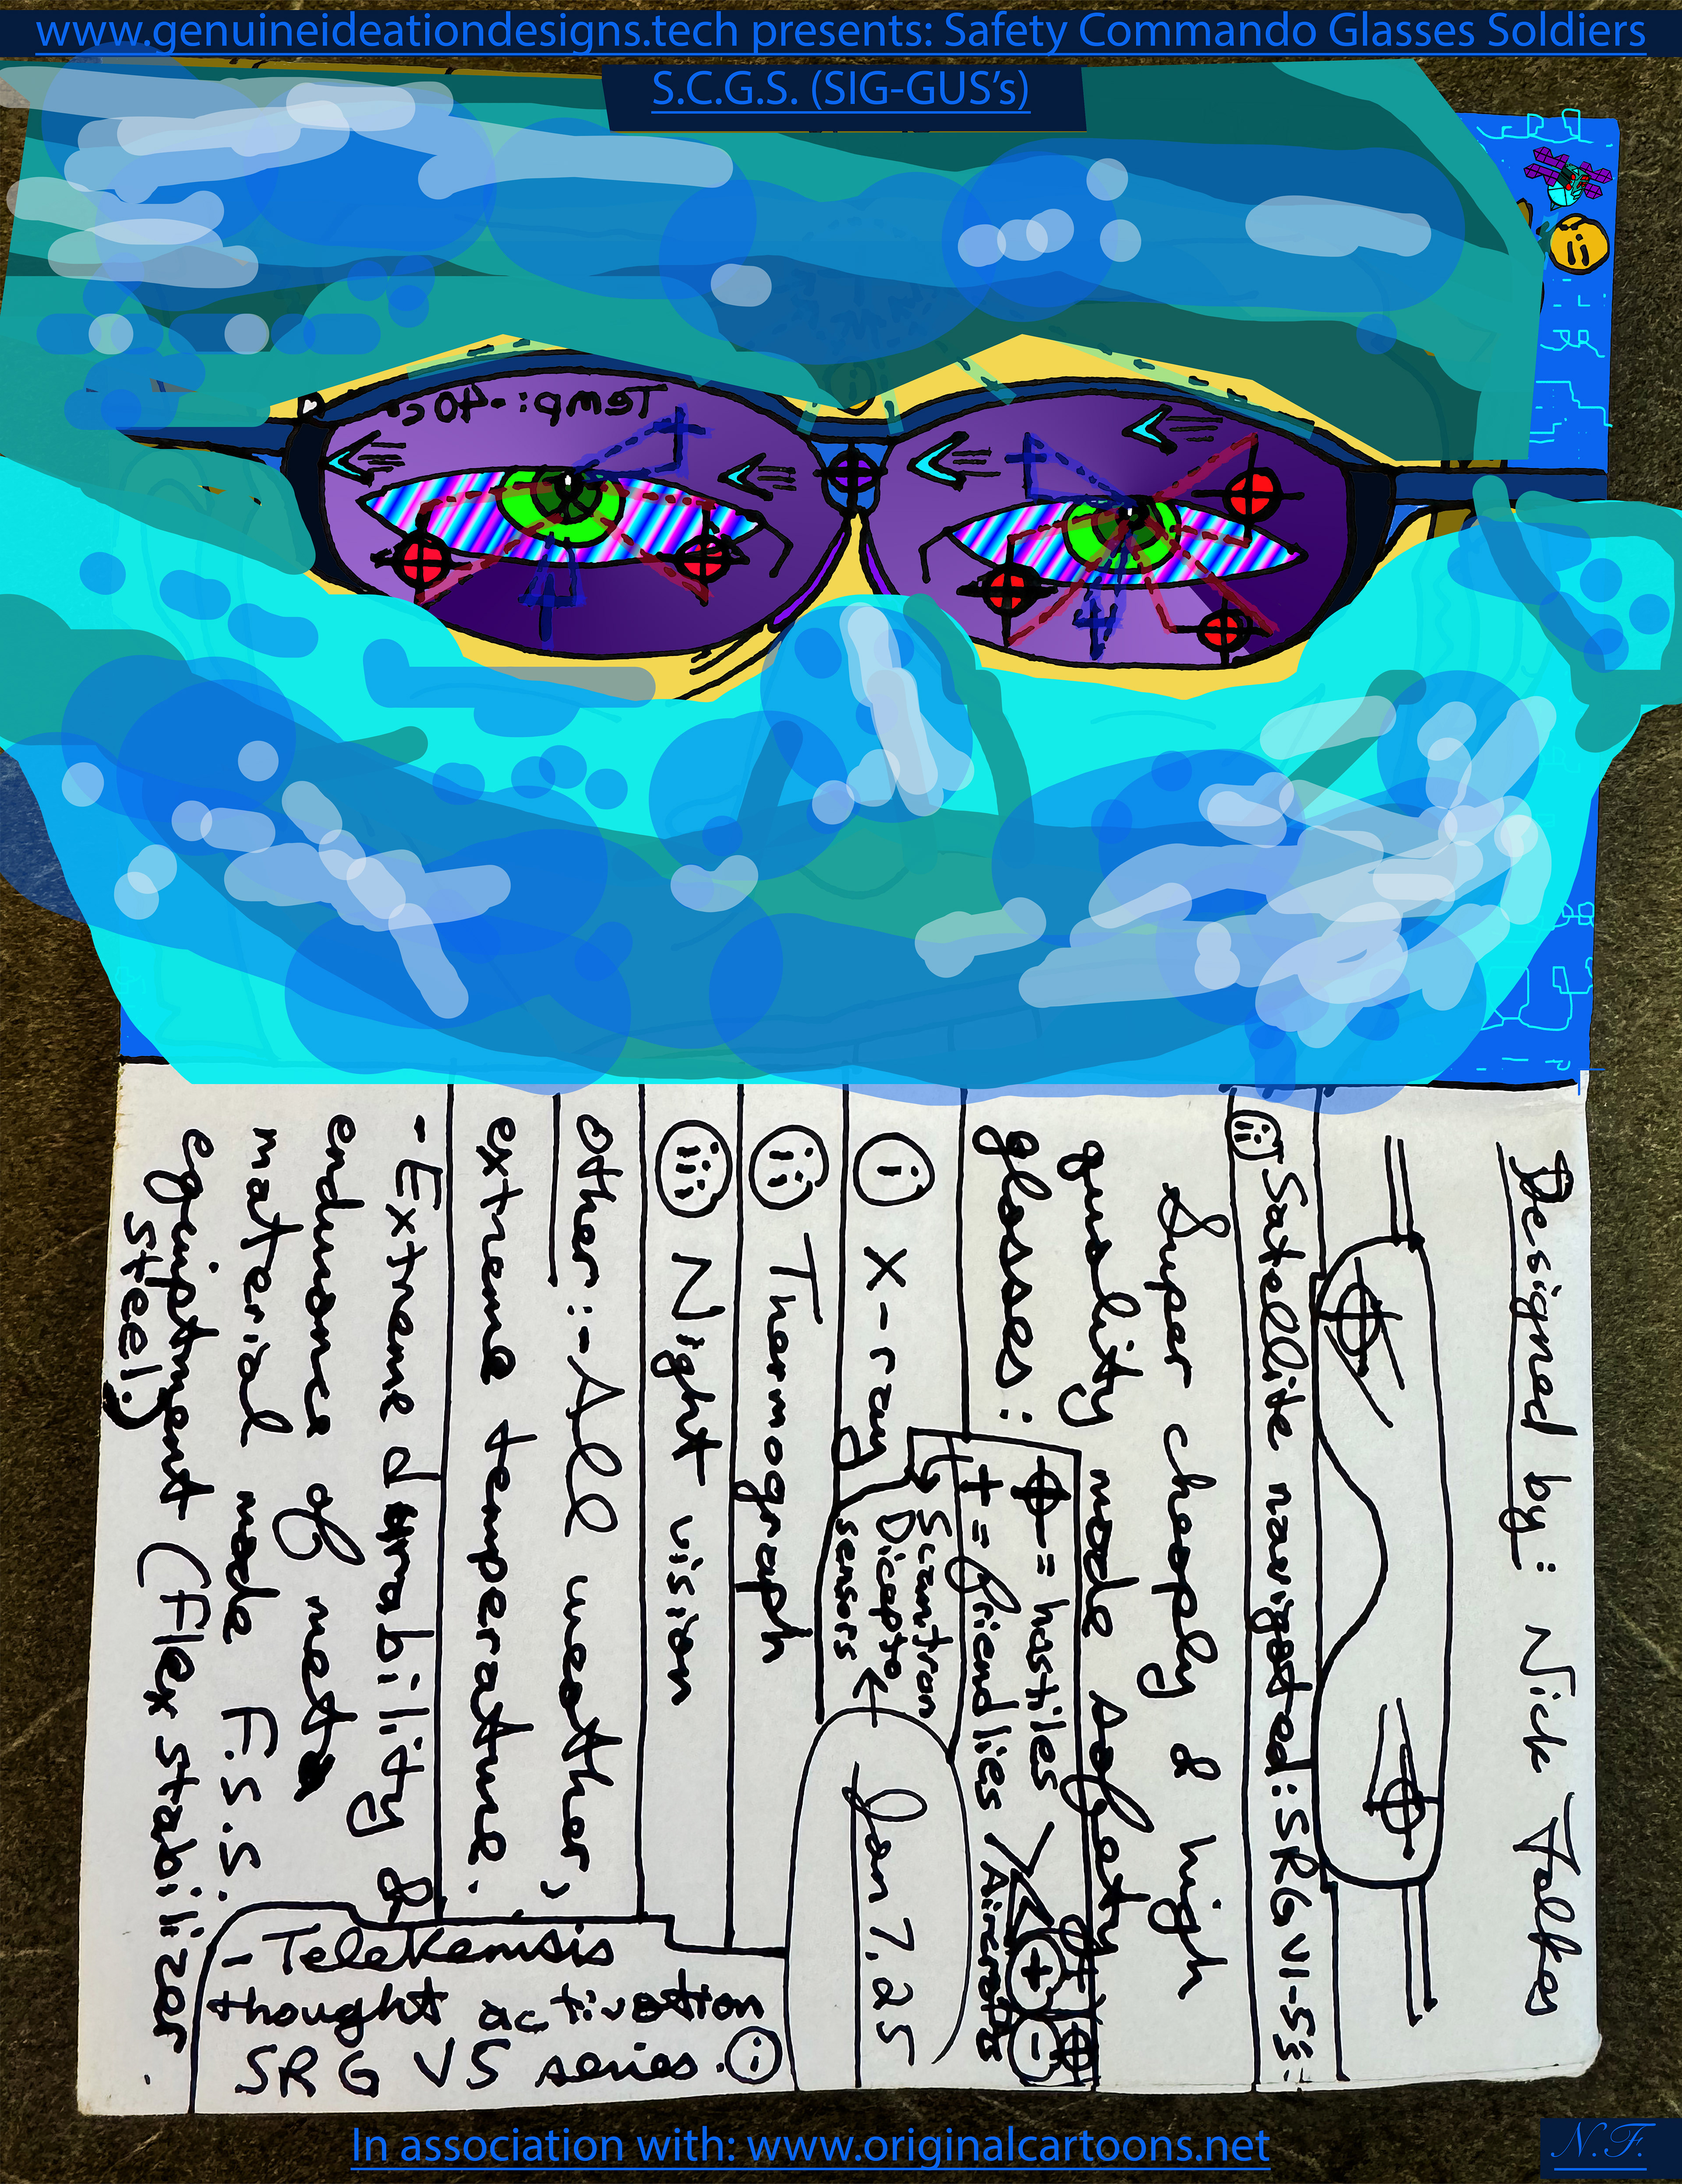 www.genuineideationdesigns.tech presents: Safety Commando Glasses Soldiers
S.C.G.S. (SIG-GUS’s)
Temp: -40c
Designed by: Nick Folkes
Satellite navigated: SRG V1-5
Super cheaply & high
quality made safety
glasses:
= hostiles
+ = friendlies / Aircrafts
i X-ray
Scantron
Dicapto
sensors
Jan 7. 25
ii Thermograph
iii Night vision
Other: - All weather,
extreme temperature.
- Extreme durability &
endurance of
material made F.S.S.
equiptment (Flex stabilizer
steel).
- Telekenisis
thought activation
SRG V5 series.
In association with: www.originalcartoons.net
N.F.